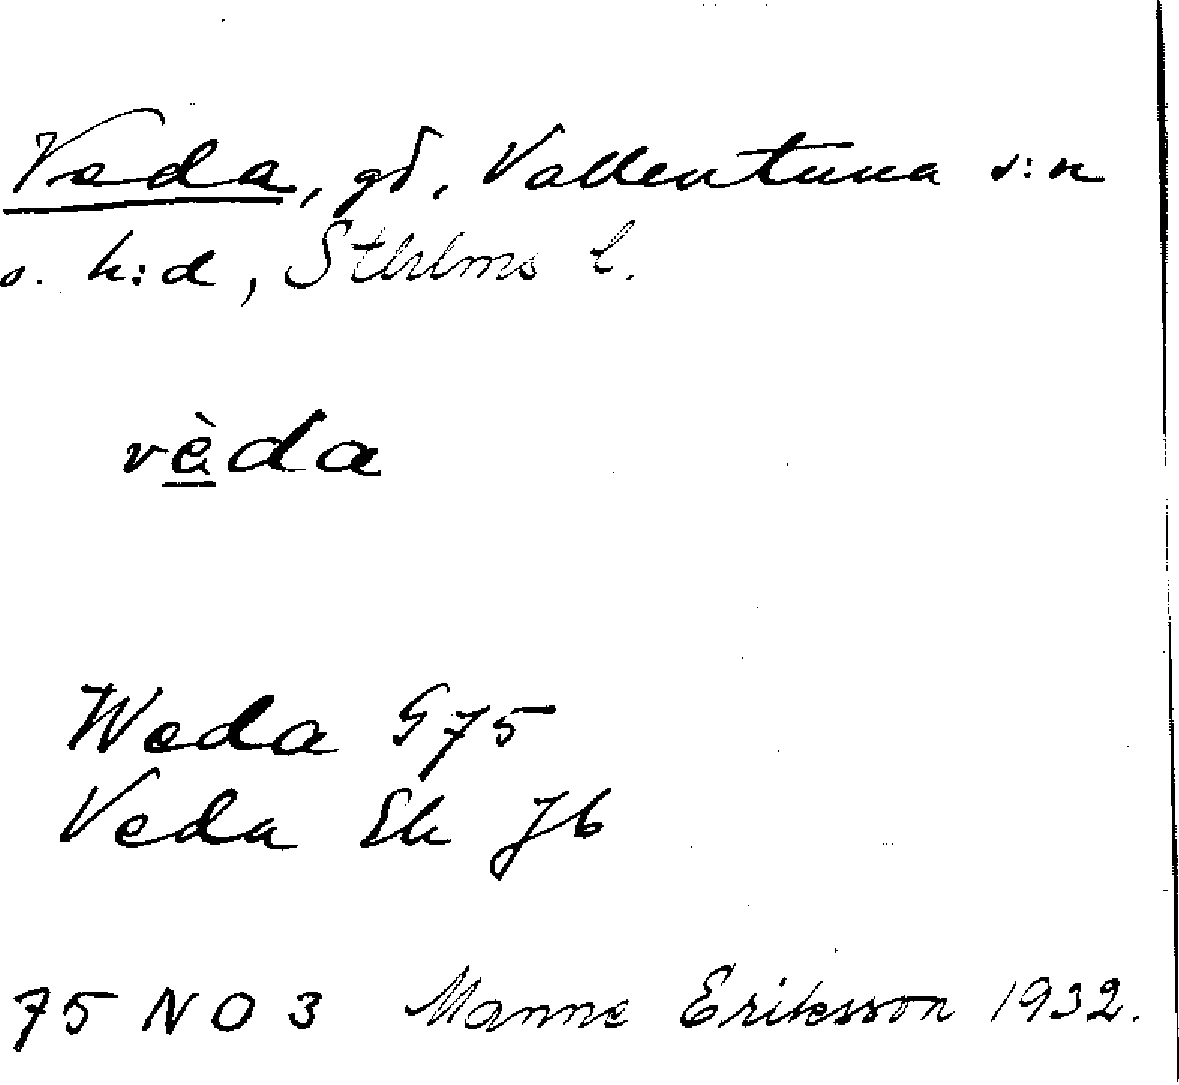 Veda, gd, Vallentuna s:n
o. h:d, Sthlms l.
vèda
Weda G75
Veda Ek Jb
75 NO 3 Manne Eriksson 1932.